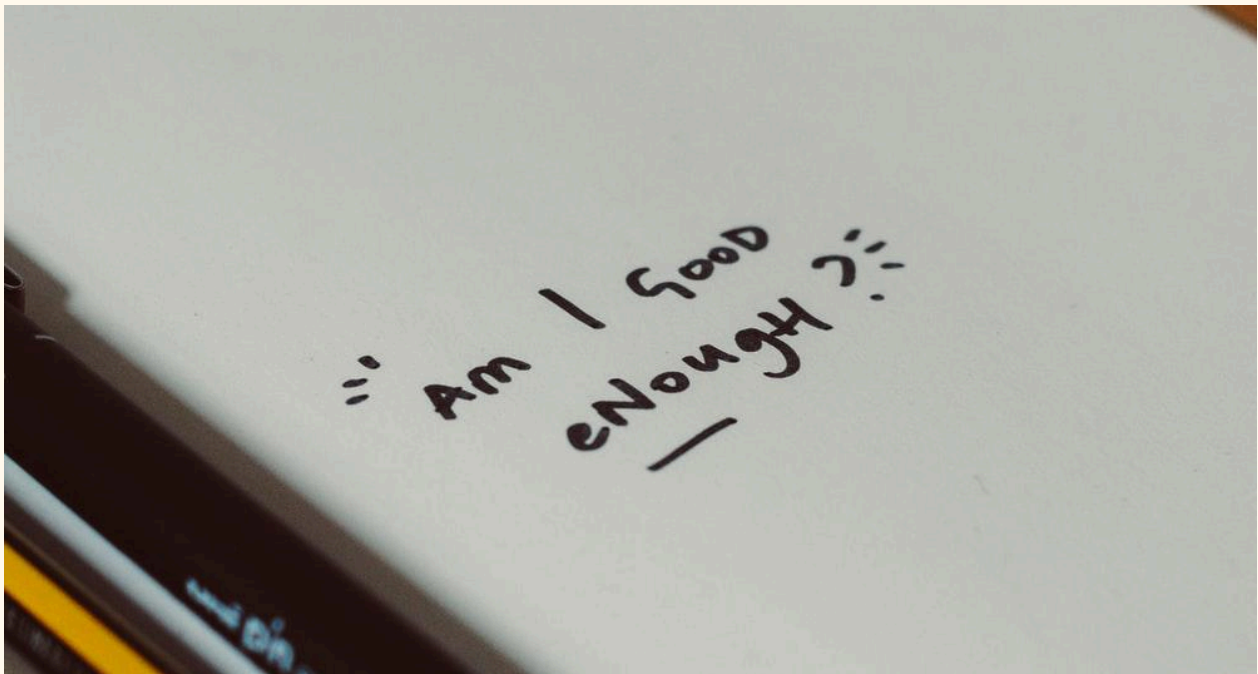 Am I GooD
eNougH?
uni